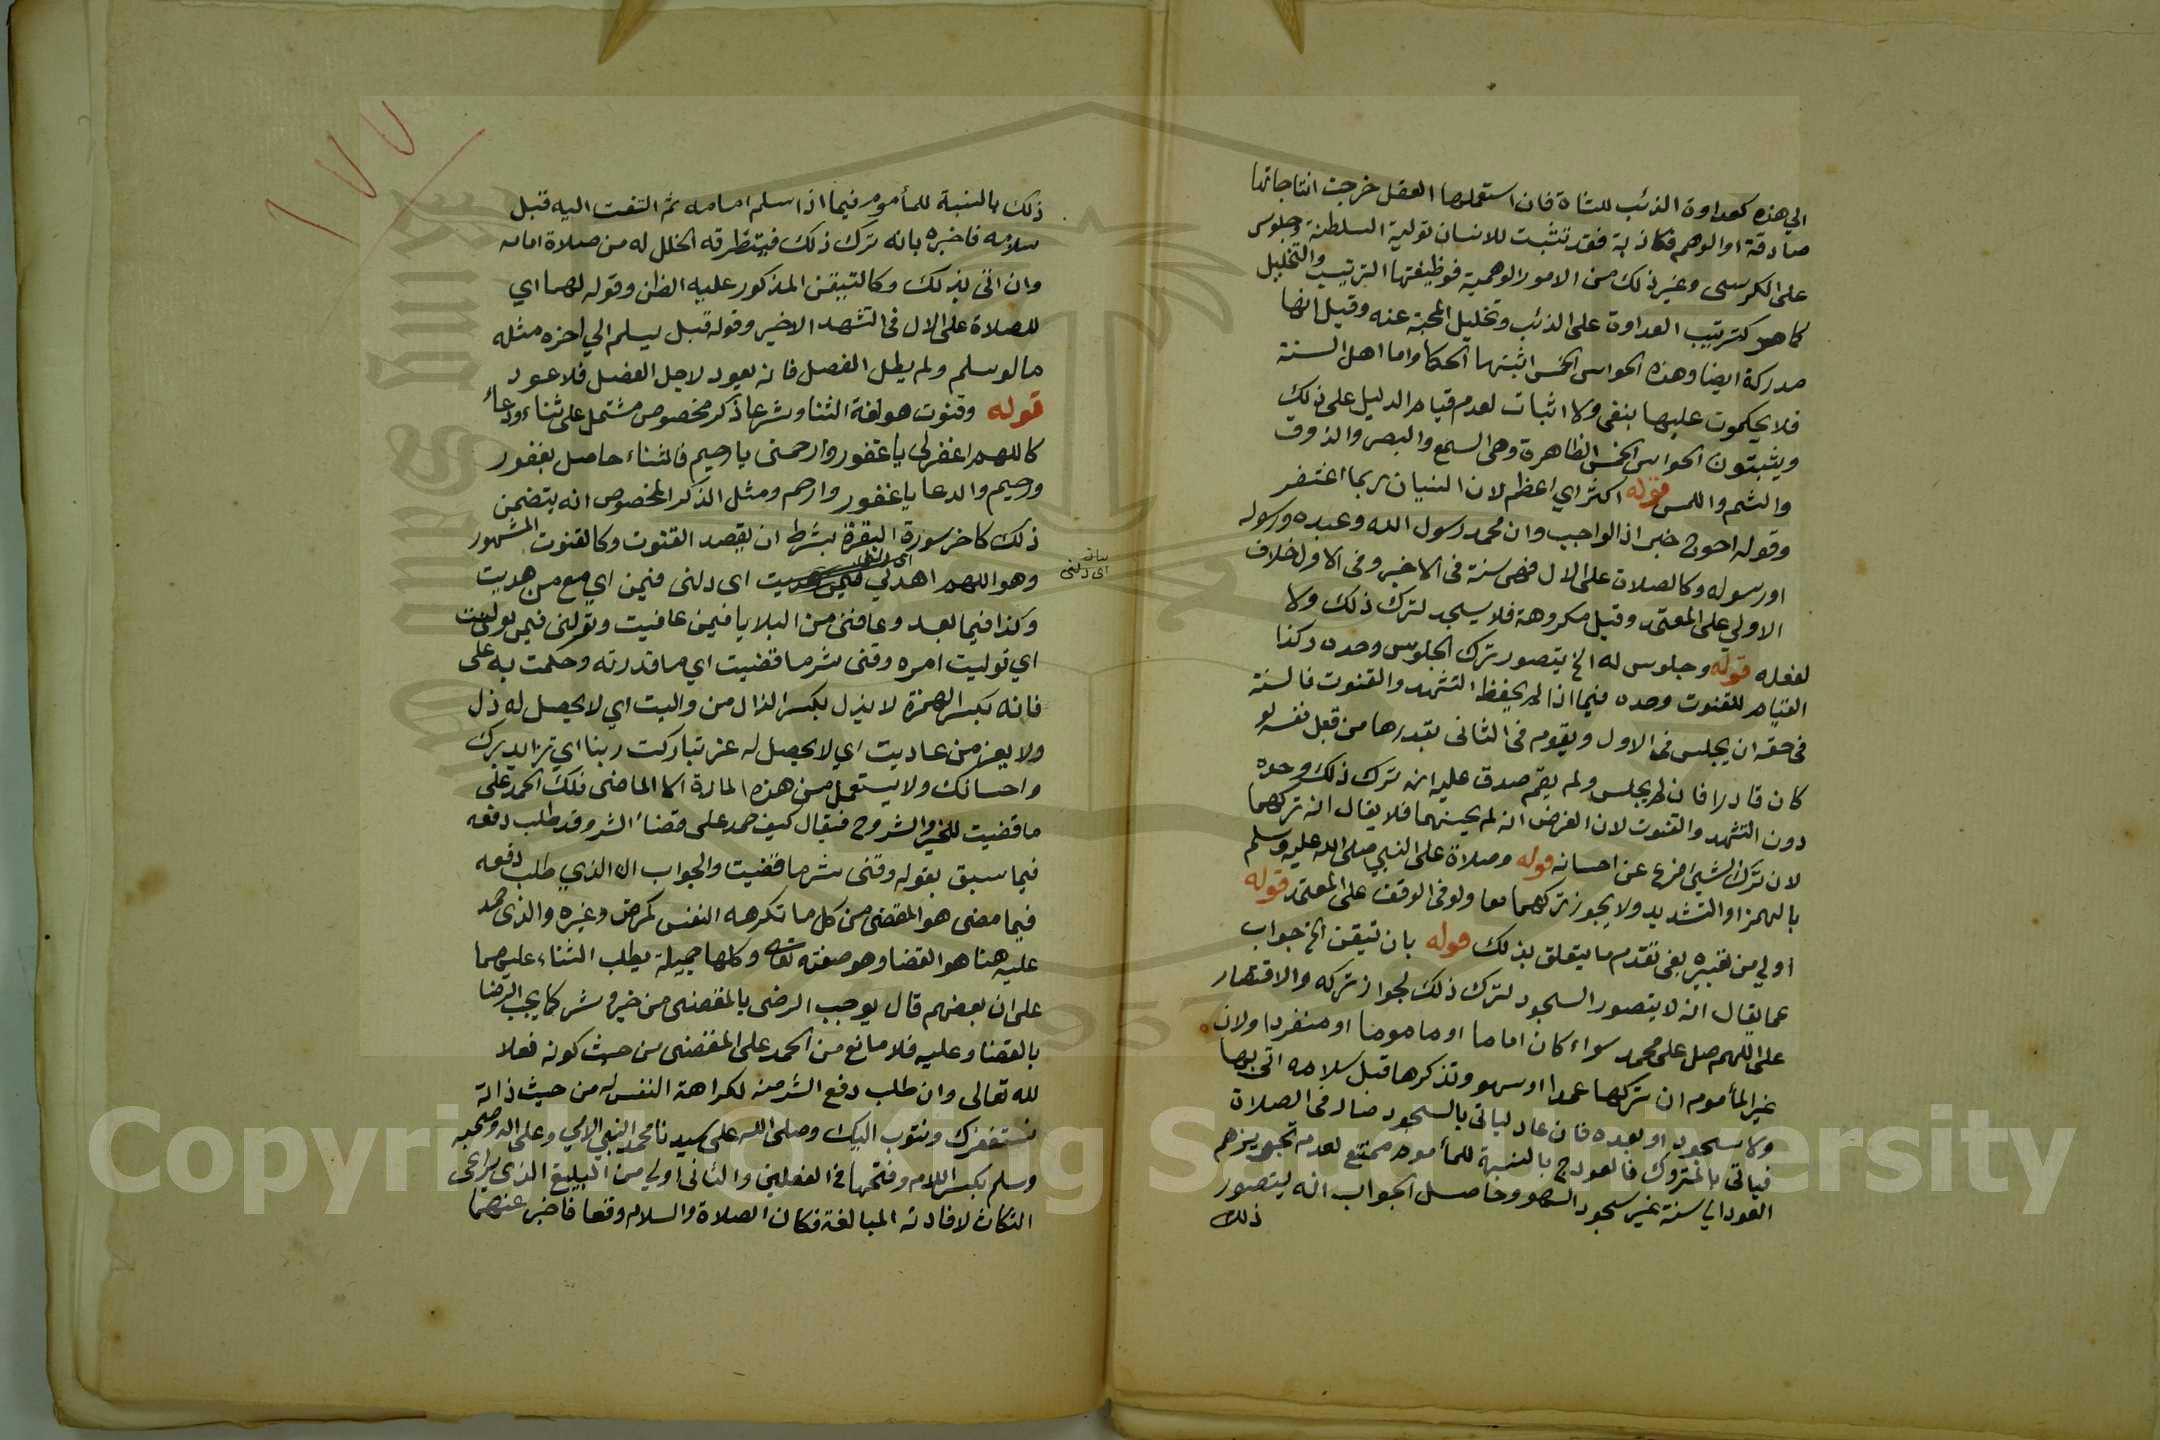 الي هذه كعداوة الذئب للشاة فان استعملها العقل خرجت انتاجاتها
صادقة او الوهم فكاذبة فقد تثبت للانسان تولية السلطنة وجلوس
على الكرسي وغير ذلك من الامور الوهمية فوظيفتها الترتيب والتحليل
كما هو كترتيب العداوة على الذئب وتحليل المحبة عنه وقيل انها
مدركة ايضا وهذه الحواس الخمس اثبتها الحكما واما اهل السنة
فلا يحكمون عليها بنفى ولا اثبات لعدم قيام الدليل على ذلك
ويثبتون الحواس الخمس الظاهرة وهى السمع والبصر والذوق
والشم واللمس قوله اكثر اي اعظم لان النسيان ربما اغتفر
وقوله احوج خبر اذ الواجب وان محمد رسول الله وعبده ورسوله
او رسوله وكالصلاة على الال فهى سنة فى الاخير وفى الاول خلاف
الاولي على المعتمد وقيل مكروهة فلا يسجد لترك ذلك ولا
لفعله قوله وجلوس له الخ يتصور ترك الجلوس وحده وكذا
القيام للقنوت وحده فيما اذا لم يحفظ التشهد والقنوت فالسنة
فى حقه ان يجلس فى الاول ويقوم فى الثانى بقدرها من قبل نفسه لو
كان قادرا فان لم يجلس ولم يقم صدق عليه انه ترك ذلك وحده
دون التشهد والقنوت لان الفرض انه لم يحسنهما فلا يقال انه تركهما
لان ترك الشيئ فرع عن احسانه قوله وصلاة على النبي صلى الله عليه وسلم
بالهمز او التشديد ولا يجوز تركهما معا ولو فى الوقف على المعتمد قوله
اولي من تعبيره بفى تقدم ما يتعلق بذلك قوله بان تيقن الخ جواب
عما يقال انه لا يتصور السجود لترك ذلك لجواز تركه والاقتصار
على اللهم صل على محمد سواء كان اماما او ماموما او منفردا ولان
غير المأموم ان تركها عمدا او سهو وتذكرها قبل سلامه اتى بها
ولا سجود او بعده فان عاد لياتى بالسجود صار فى الصلاة
فياتى بالمتروك فالعود بالنسبة للمأموم ممتنع لعدم تجويزهم
العود الي سنة غير سجود السهو وحاصل الجواب انه يتصور
ذلك
١٧٧
ذلك بالنسبة للمأموم فيما اذا سلم امامه ثم التفت اليه قبل
سلامه فاخبره بانه ترك ذلك فيتطرقه الخلل له من صلاة امامه
وان اتى بذلك وكالتيقن المذكور عليه الظن وقوله لهما اي
للصلاة على الال فى التشهد الاخير وقوله قبل يسلم الي اخره مثله
ما لو سلم ولم يطل الفصل فانه يعود لاجل الفصل فلا عود
قوله وقنوت هو لغة الثنا وشرعا ذكر مخصوص مشتمل على ثناء ودعاء
كاللهم اغفر لي يا غفور وارحمنى يا رحيم فالثناء حاصل بغفور
ورحيم والدعا يا غفور وارحم ومثل الذكر المخصوص انه يتضمن
ذلك كاخر سورة البقرة بشرط ان يقصد القنوت وكالقنوت المشهور
وهو اللهم اهدنى فيمن هديت اى دلنى فيمن اي مع من هديت
اى دلنى
وكذا فيما بعد وعافنى من البلايا فيمن عافيت وتولنى فيمن توليت
اي توليت امره وقنى شر ما قضيت اي ما قدرته وحكمت به على
فانه بكسر الهمزة لا يذل بكسر الذال من واليت اي لا يحصل له ذل
ولا يعز من عاديت اي لا يحصل له عز تباركت ربنا اي تزايد برك
واحسانك ولا يستعمل من هذه المادة الا الماضى فلك الحمد على
ما قضيت للخير والشر فيقال كيف حمد على قضاء الشر وقد طلب دفعه
فيما سبق بقوله وقنى شر ما قضيت والجواب ان الذي طلب دفعه
فيما مضى هو المقضى من كل ما تكرهه النفس كمرض وغيره والذى حمد
عليه هنا هو القضا وهو صفته تعالى وكلها جميلة يطلب الثناء عليهما
على ان بعضهم قال يوجب الرضى بالمقضى من خير وشر كما يجب الرضا
بالقضا وعليه فلا مانع من الحمد على المقضى من حيث كونه فعلا
لله تعالى وان طلب دفع الشر منه لكراهة النفس له من حيث ذاته
نستغفرك ونتوب اليك وصلى الله على سيدنا محمد النبي الامي وعلى اله وصحبه
وسلم بكسر اللام وفتحها فى الفعلين والثانى اولي من البليغ الذى يراعى
النكات لافادته المبالغة فكان الصلاة والسلام وقعا فاخبر عنهما
Copyright © King Saud University
1957